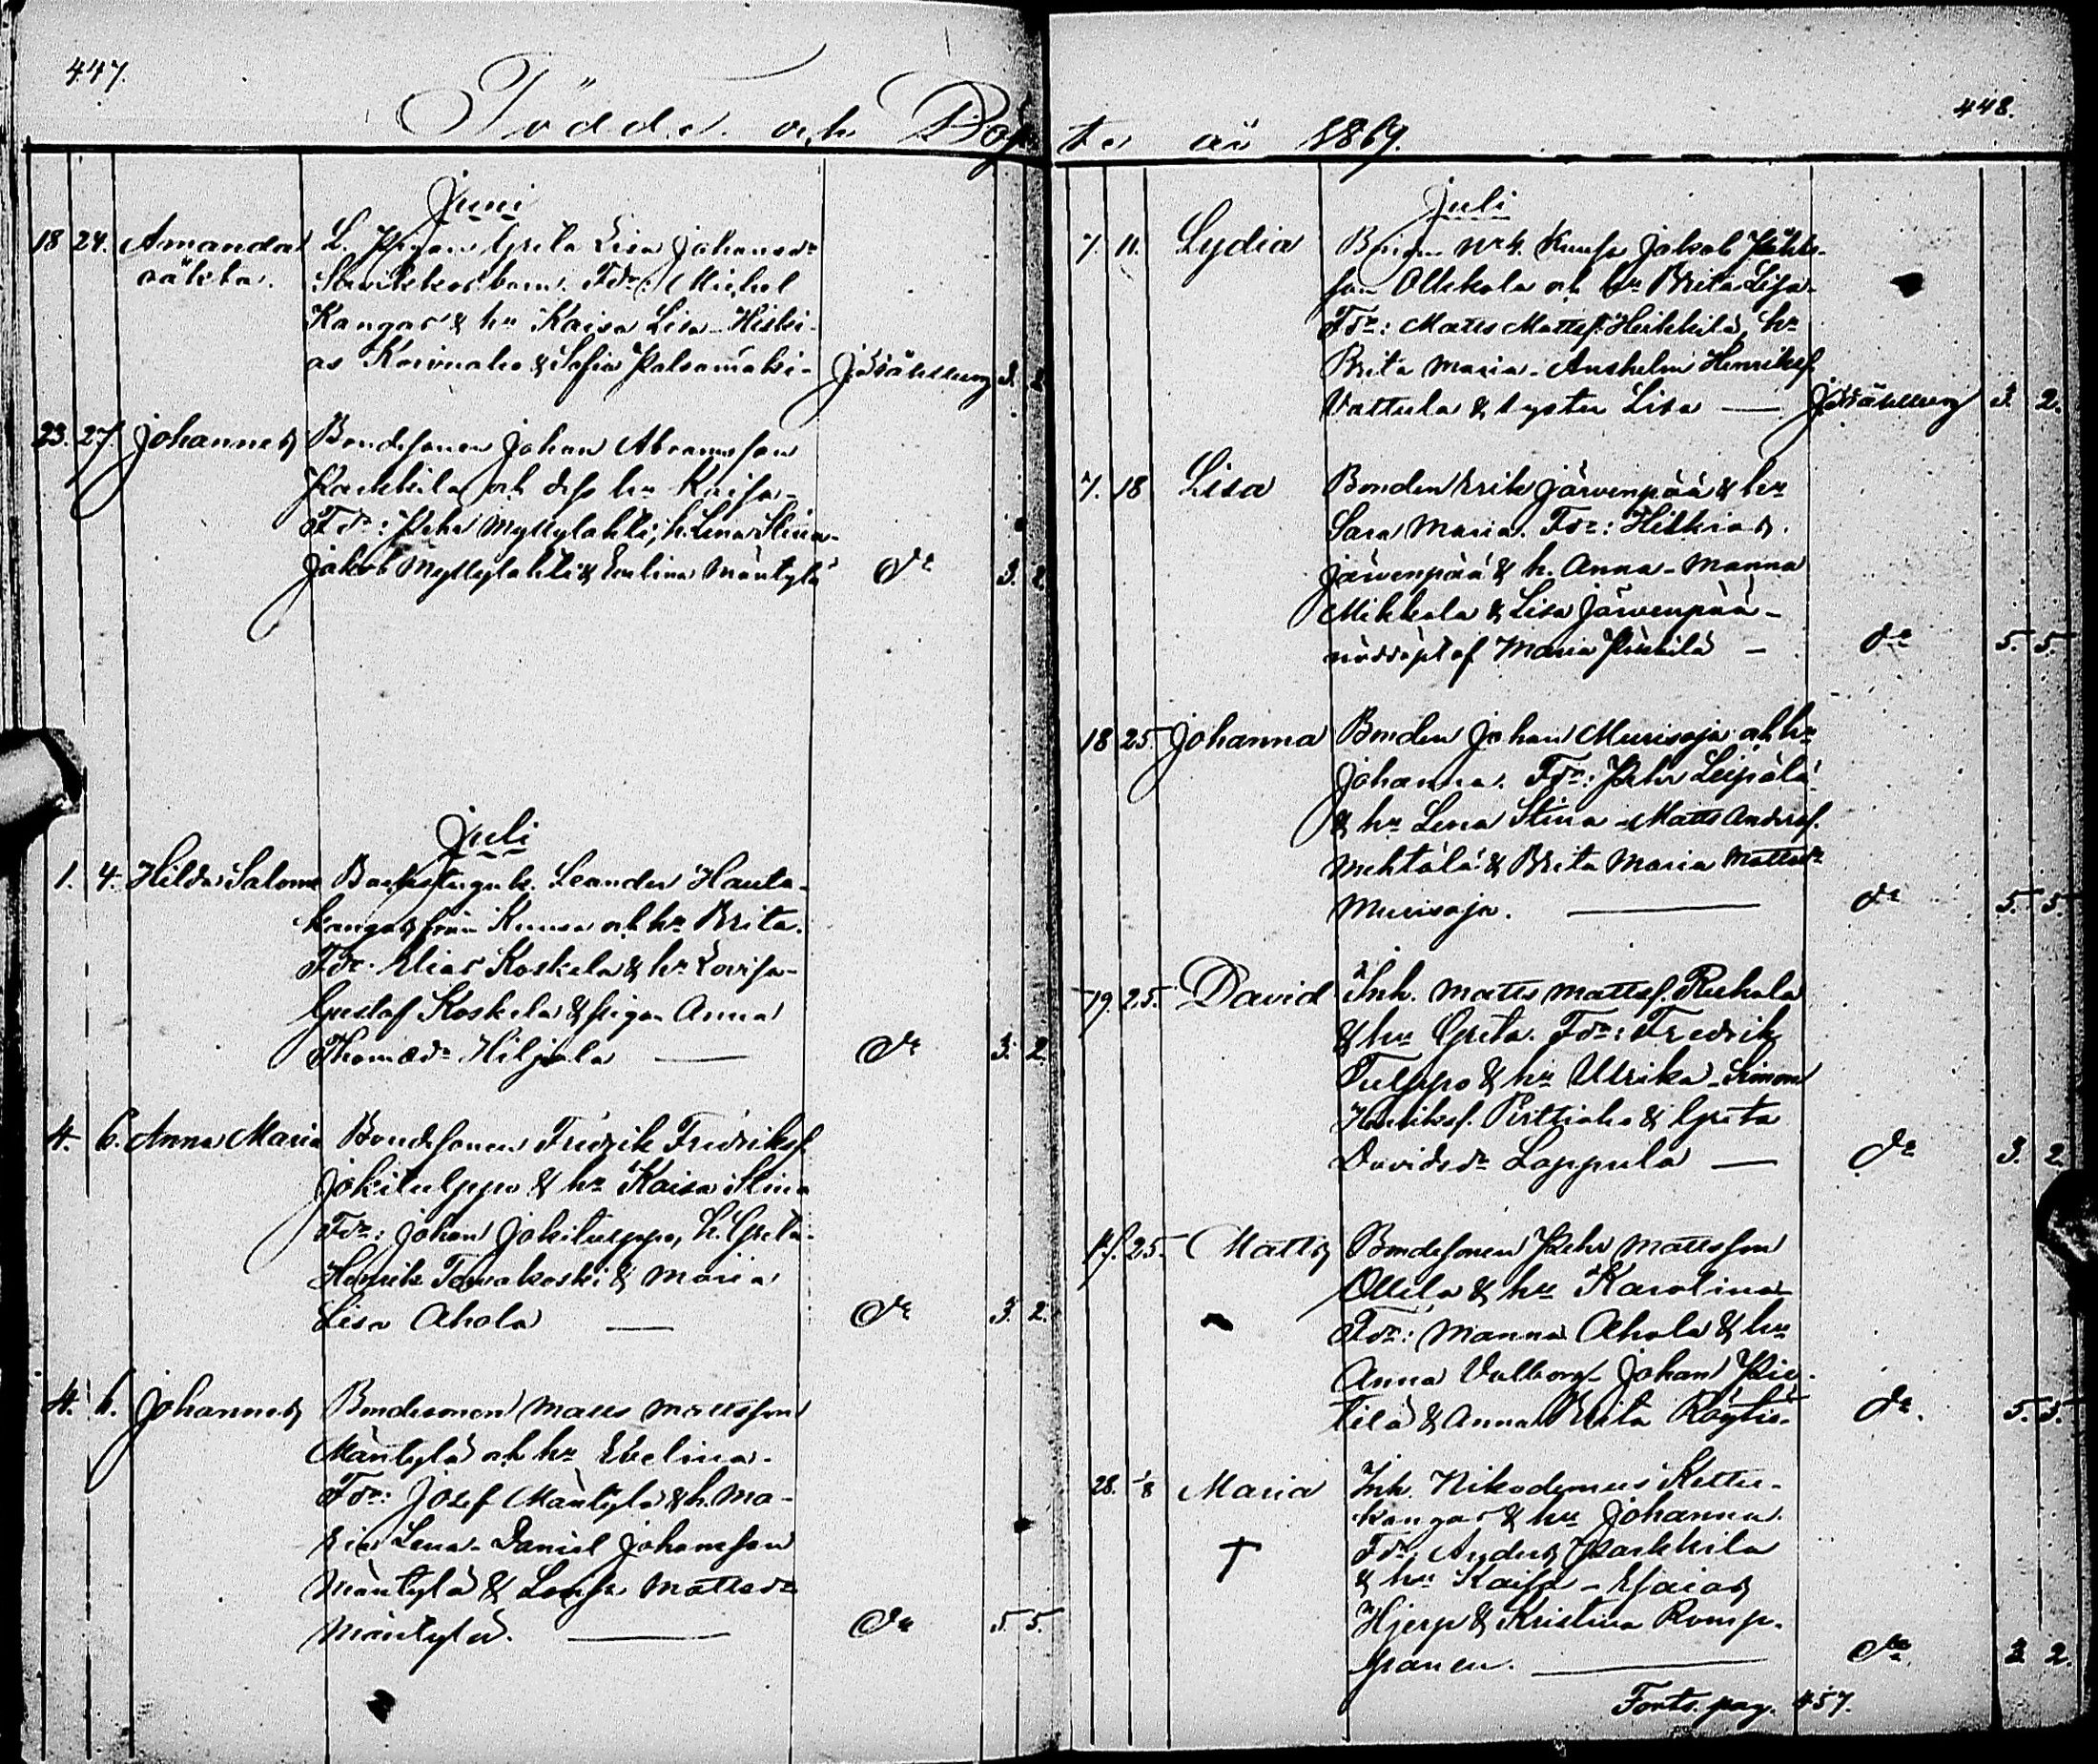 447.
Födde och Döp
Juni
18 24. Amanda L. Pigan Greta Lisa Johansdr
oäkta. barn. Fdr: Michel
Kangas & hu Kaisa Lisa - Hiski-
as Koivuaho & Sofia Palsamäki -
3. 2
23. 27. Johannes Bondesonen Johan Abramsson
Parkkila och dess hu Kaisa -
Fdr: Pehr Myllylahti, h. Lena Stina -
Jakob Myllylahti & Evelina Mäntylä do 3. 2
Juli
1. 4. Hilda Salome Backstugok. Leander Hauta-
kangas från Kuusa och hu Brita.
Fdr. Elias Koskela & hu Lovisa -
Gustaf Koskela & pigan Anna
Thomædr Hiljala — do 3. 2.
4. 6. Anna Maria Bondesonen Fredrik Fredrikss.
Jokitulppo & hu Kaisa Stina
Fdr: Johan Jokitulppo, h. Greta -
Henrik Tawakoski & Maria
Lisa Ahola — do 3. 2.
4. 6. Johannes Bondesonen Matts Mattsson
Mäntylä och hu Evelina.
Fdr: Josef Mäntylä & h. Ma-
ria Lena - Daniel Johansson
Mäntylä & Lovisa Mattsdr
Mäntylä. — do 5. 5.
448.
te år 1869.
Juli
7. 11. Lydia Kuusa Jakob
son Ollikkala och hu Brita Lisa -
Fdr: Matts Mattss. Heikkilä, hu
Brita Maria - Anshelm Henrikss.
Vattula & syster Lisa — 3. 2.
7. 18 Lisa Bonden Erik Järvenpää & hu
Sara Maria. Fdr: Hiskias
Järvenpää & h. Anna - Manna
Mikkola & Lisa Järvenpää -
nöddöpt af Maria — do 5. 5.
18 25. Johanna Bonden Johan Murisoja och hu
Johanna. Fdr: Pehr Leipälä
& hu Lena Stina - Matts Anderss.
Mehtälä & Brita Maria Mattsdr
Murisoja. — do 5. 5.
19. 25. David Inh. Matts Mattss. Ruhala
& hu Greta. Fdr: Fredrik
Tulppo & hu Ulrika - Simon
Henrikss. Perttiaho & Greta
Davidsdr Lappula — do 3. 2.
25. Matts Bondesonen Pehr Mattsson
Ollila & hu Karolina
Fdr: Manna Ahola & hu
Anna Valborg - Johan Pie-
tilä & Anna Brita Röytiö. do. 5. 5.
28. 1/8 Maria Inh. Nikodemus Kettu-
kangas & hu Johanna.
† Fdr: Anders Parkkila
& hu Kaisa - Esaias
Hjerp & Kristina Romp-
panen. — do 3 2.
Forts. pag. 457.